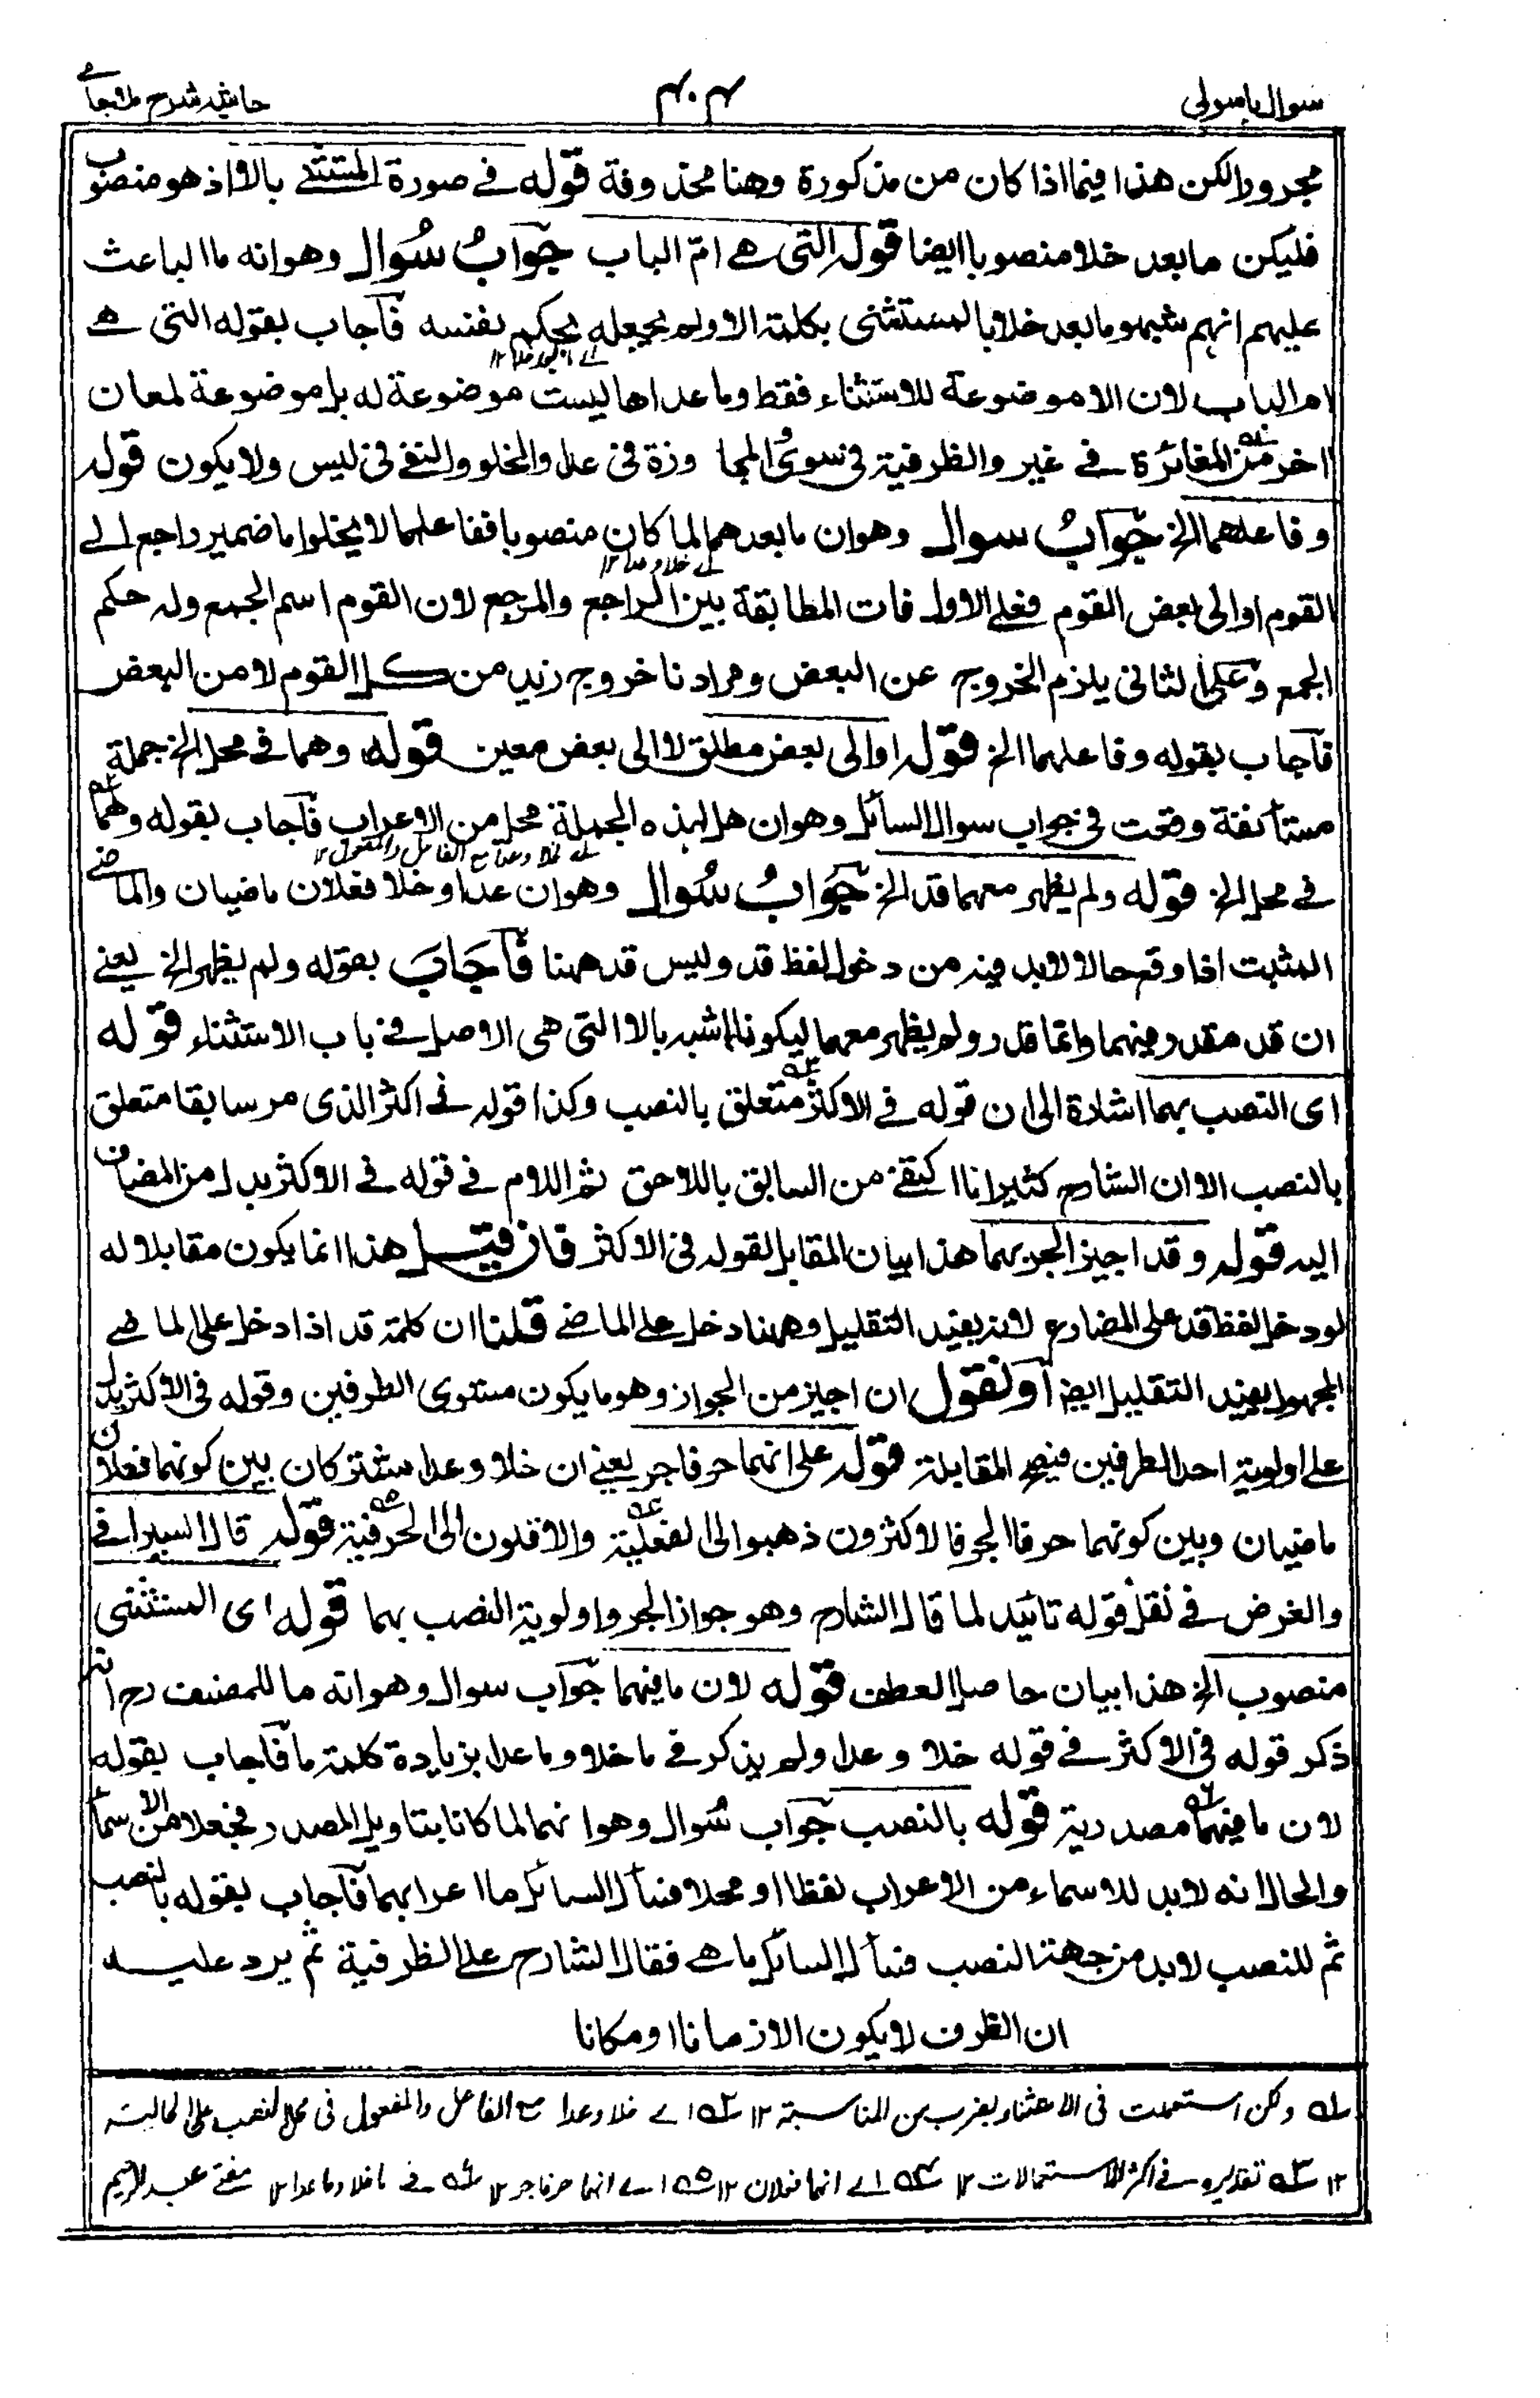 سوال باسولی
۴۰۴
حاشیہ شرح ملا جامے
مجرورا لكن هذا فيما اذا كان من مذكورة وهنا محذوفة قوله في صورة المستثنى بالا اذ هو منصوب
فليكن ما بعد خلا منصوبا ايضا قوله التى هے امّ الباب جوابُ سُوال وهو انه ما الباعث
عليهم انهم شبهوا ما بعد خلا بالمستثنى بكلمة الا ولم يجعله بحكم نفسه فأجاب بقوله التى هے
ام الباب لان الا موضوعة للاستثناء فقط وما عداها ليست موضوعة له بل موضوعة لمعان
اخر من المغائرة فے غير والظرفية فى سوى والمجاوزة فى عدا والخلو والنفے فى ليس ولا يكون قوله
وفاعلهما الخ جوابُ سوال وهو ان ما بعدهما لما كان منصوبا ففاعلهما لا يخلوا ما ضمير راجع الے
القوم او الى بعض القوم فعلے الاول فات المطابقة بين الراجع والمرجع لان القوم اسم الجمع وله حكم
الجمع وعلى الثانى يلزم الخروج عن البعض ومرادنا خروج زيد من كل القوم لا من البعض
فأجاب بقوله وفاعلهما الخ قوله او الى بعض مطلق لا الى بعض معين قوله وهما فى محل الخ جملة
مستأنفة وقعت فى جواب سوال السائل وهو ان هل لهذه الجملة محل من الاعراب فأجاب بقوله وهما
فے محل الخ قوله ولم يظهر معهما قد الخ جوابُ سُوال وهو ان عدا وخلا فعلان ماضيان والماضے
المثبت اذا وقع حالا لابد فيه من دخول لفظ قد وليس قد ههنا فأجاب بقوله ولم يظهر الخ يعنے
ان قد مقدر فيهما وانما قدر ولم يظهر معهما ليكونا اشبه بالا التى هى الاصل فے باب الاستثناء قوله
اى النصب بهما اشارة الى ان قوله فے الاكثر متعلق بالنصب وكذا قوله فے اكثر الذى مر سابقا متعلق
بالنصب الا ان الشارح كثيرا ما اكتفے من السابق باللاحق ثم اللام فے قوله فے الاكثر بدل من المضاف
اليه قوله وقد اجيز الجر بهما هذا بيان المقابل لقوله فى الاكثر فان قيل هذا انما يكون مقابلا له
لو دخل لفظ قد على المضارع لانه يفيد التقليل وههنا دخل علے الماضے قلنا ان كلمة قد اذا دخل على الماضے
المجهول يفيد التقليل ايضا او نقول ان اجيز من الجواز وهو ما يكون مستوى الطرفين وقوله فى الاكثر يدل
علے اولوية احد الطرفين فيصح المقابلة قوله على انهما حرفا جر يعنے ان خلا وعدا مشتركان بين كونهما فعلان
ماضيان وبين كونهما حرفا الجر فالاكثرون ذهبوا الى الفعلية والاقلون الى الحرفية قوله قال السيرافے
والغرض فے نقل قوله تائيد لما قال الشارح وهو جواز الجر واولوية النصب بهما قوله اى المستثنى
منصوب الخ هذا بيان حاصل العطف قوله لان ما فيهما جواب سوال وهو انه ما للمصنف رح انه
ذكر قوله فى الاكثر فے قوله خلا وعدا ولم يذكر فے ما خلا وما عدا بزيادة كلمة ما فأجاب بقوله
لان ما فيهما مصدرية قوله بالنصب جواب سُوال وهو انهما لما كانا بتاويل المصدر فجعلا من الاسماء
والحال انه لابد للاسماء من الاعراب لفظا او محلا فسأل السائل ما اعرابهما فأجاب بقوله بالنصب
ثم للنصب لابد من جهة النصب فسأل السائل ما هے فقال الشارح على الظرفية ثم يرد عليه
ان الظرف لا يكون الا زمانا او مكانا
؎۱ ولكن استعملت فى الاستثناء بضرب من المناسبة ۱۲ ؎۲ اے خلا وعدا مع الفاعل والمفعول فى محل النصب على الحالية
۱۲ ؎۳ تقديره فے اكثر الاستعمالات ۱۲ ؎۴ اے انهما فعلان ۱۲ ؎۵ اے انهما حرفا جر ۱۲ ؎۶ فے ما خلا وما عدا ۱۲ مفتے عبد الرحيم